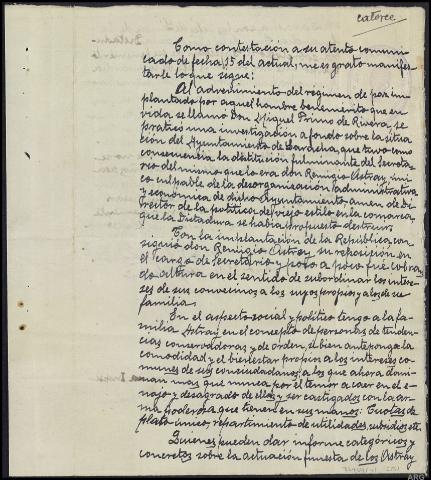 catorce
Como contestación a su atento comuni-
cado de fecha 15 del actual, me es grato manifes-
tarle lo que sigue:
Al advenimiento del regimen de paz im-
plantado por aquel hombre benemérito que en
vida se llamó Don Miguel Primo de Rivera, se
practicó una investigación a fondo sobre la situa-
ción del Ayuntamiento de Laracha, que tuvo como
consecuencia la destitución fulminante del Secreta-
rio del mismo que lo era don Remigio Astray, úni-
co culpable de la desorganización administrativa
y económica de dicho Ayuntamiento, amen de Di-
rector de la política de viejo estilo en la comarca,
que la Dictadura se había propuesto destruir.
Con la implantación de la República, con-
siguió don Remigio Astray, su reposición en
el cargo de Secretario y poco a poco fué cobran-
do altura en el sentido de subordinar los intere-
ses de sus convecinos a los suyos propios y a los de su
familia.
En el aspecto social y político tengo a la fa-
milia Astray en el concepto de personas de tenden-
cias conservadoras y de orden, si bien antepongo la
comodidad y el bienestar propios a los intereses co-
munes de sus conciudadanos, a los que ahora domi-
nan mas que nunca por el temor a caer en el e-
nojo y desagrado de ellos y ser castigados con la ar-
ma poderosa que tienen en sus manos: Cuotas de
plato único, repartimiento de utilidades, subsidios etc.
Quienes pueden dar informe categóricos y
concretos sobre la actuación funesta de los Astray
ARG